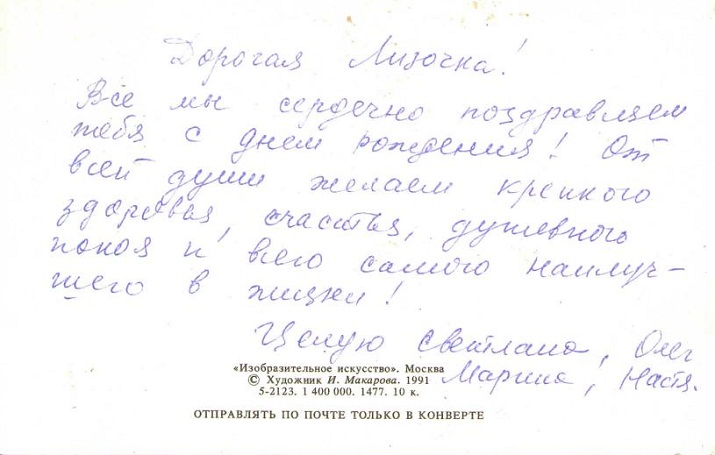 Дорогая Лизочка!
Все мы сердечно поздравляем
тебя с днем рождения! От
всей души желаем крепкого
здоровья, счастья, душевного
покоя и всего самого наилуч-
шего в жизни!
Целую Светлана, Олег
Марина, Настя.
«Изобразительное искусство». Москва
© Художник И. Макарова. 1991
5-2123. 1 400 000. 1477. 10 к.
ОТПРАВЛЯТЬ ПО ПОЧТЕ ТОЛЬКО В КОНВЕРТЕ